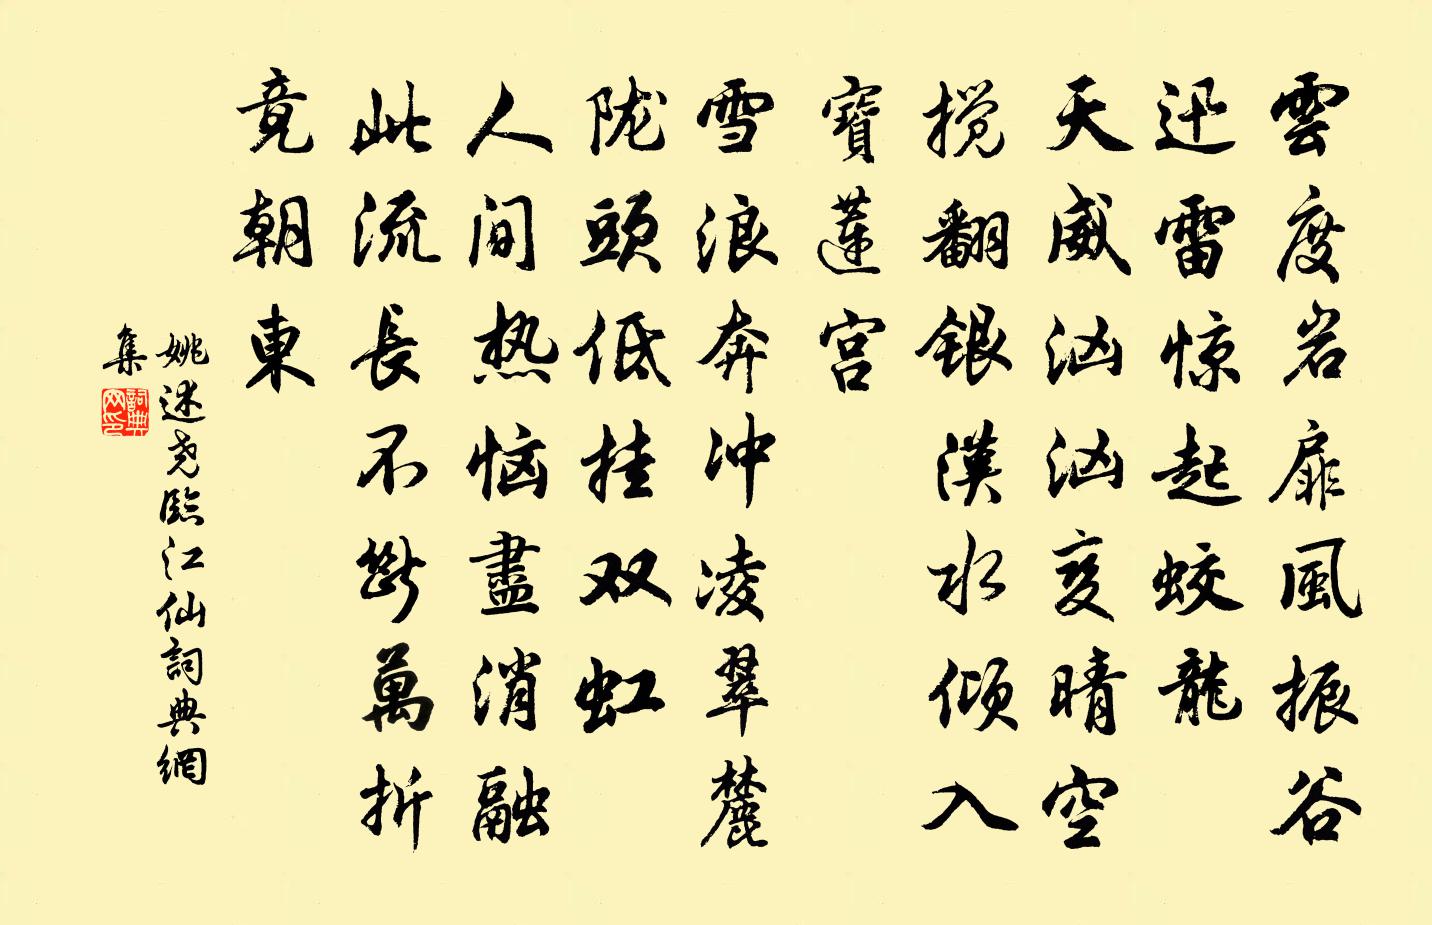 雲度岩扉風振谷
迅雷惊起蛟龍
天威汹汹变晴空
搅翻银漢水倾入
寶蓮宫
雪浪奔冲凌翠麓
陇頭低挂双虹
人间热恼盡消融
此流長不斷萬折
竟朝東
姚述尧臨江仙詞典網
集
詞典
网印